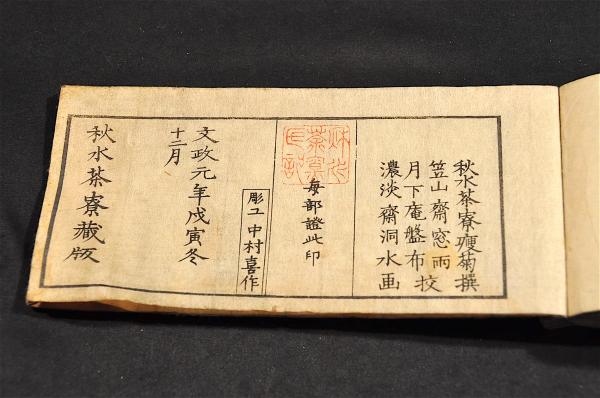 秋水茶寮痩菊撰
笠山齋窓雨
月下庵盤布校
濃淡齋洞水画
毎部證此印
彫工中村喜作
文政元年戊寅冬
十二月
秋水茶寮藏版